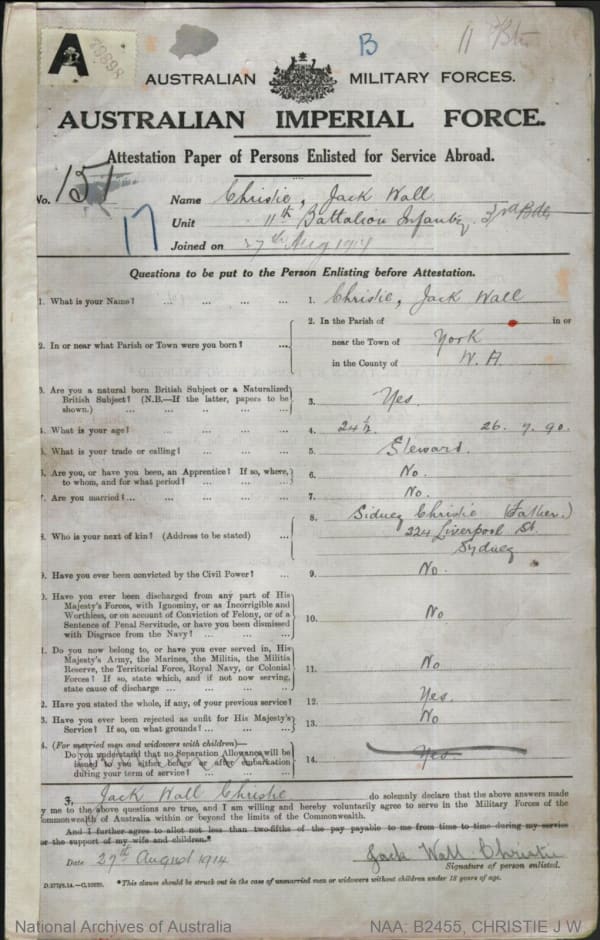 A 79898
B
11 Btn
AUSTRALIAN MILITARY FORCES.
AUSTRALIAN IMPERIAL FORCE.
Attestation Paper of Persons Enlisted for Service Abroad.
No. 151 Name Christie, Jack Wall
17 Unit 11th Battalion Infantry 3rd Bde
Joined on 27th Aug 1914
Questions to be put to the Person Enlisting before Attestation.
1. What is your Name? ... ... ... ... 1. Christie, Jack Wall
2. In the Parish of in or
2. In or near what Parish or Town were you born? ... near the Town of York
in the County of W. A.
3. Are you a natural born British Subject or a Naturalized
British Subject? (N.B.—If the latter, papers to be 3. Yes.
shown.) ... ... ... ...
4. What is your age? ... ... ... ... 4. 24½ 26. 7. 90.
5. What is your trade or calling? ... ... ... 5. Steward.
6. Are you, or have you been, an Apprentice? If so, where, 6. No.
to whom, and for what period? ... ... ...
7. Are you married? ... ... ... ... 7. No.
8. Sidney Christie (Father.)
8. Who is your next of kin? (Address to be stated) ... 224 Liverpool St.
Sydney
9. Have you ever been convicted by the Civil Power? ... 9. No.
10. Have you ever been discharged from any part of His
Majesty's Forces, with Ignominy, or as Incorrigible and
Worthless, or on account of Conviction of Felony, or of a 10. No
Sentence of Penal Servitude, or have you been dismissed
with Disgrace from the Navy? ... ... ...
11. Do you now belong to, or have you ever served in, His
Majesty's Army, the Marines, the Militia, the Militia
Reserve, the Territorial Force, Royal Navy, or Colonial 11. No
Forces? If so, state which, and if not now serving,
state cause of discharge ... ... ... ...
2. Have you stated the whole, if any, of your previous service? 12. Yes.
3. Have you ever been rejected as unfit for His Majesty's 13. No
Service? If so, on what grounds? ... ... ...
4. (For married men and widowers with children)—
Do you understand that no Separation Allowance will be
issued to you either before or after embarkation 14. Yes
during your term of service? ... ... ...
I, Jack Wall Christie do solemnly declare that the above answers made
by me to the above questions are true, and I am willing and hereby voluntarily agree to serve in the Military Forces of the
Commonwealth of Australia within or beyond the limits of the Commonwealth.
And I further agree to allot not less than two-fifths of the pay payable to me from time to time during my service
for the support of my wife and children.*
Date 27th August 1914 Jack Wall Christie
Signature of person enlisted.
*This clause should be struck out in the case of unmarried men or widowers without children under 18 years of age.
National Archives of Australia NAA: B2455, CHRISTIE J W